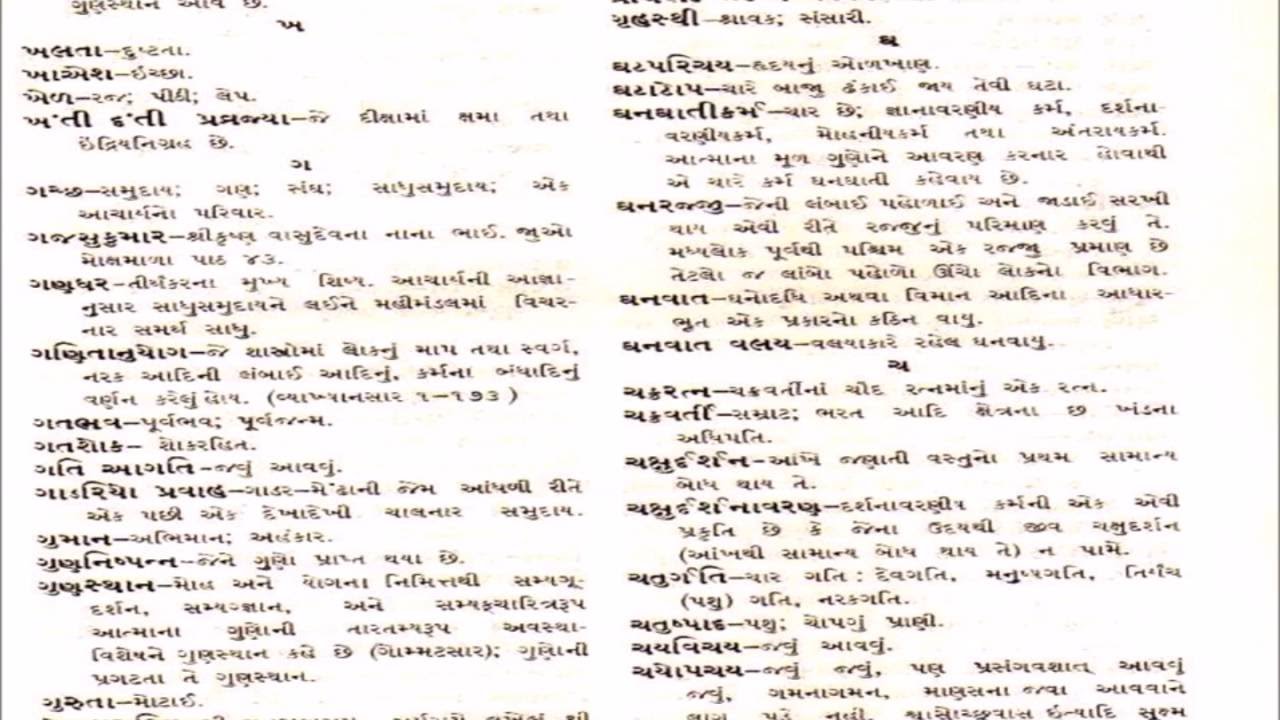 ગુણસ્થાન આવે છે.
ખ
ખલતા–દુષ્ટતા.
ખાએશ–ઇચ્છા.
ખેળ–રજ; પીઠી; લેપ.
ખંતી દંતી પ્રવ્રજ્યા–જે દીક્ષામાં ક્ષમા તથા
ઇંદ્રિયનિગ્રહ છે.
ગ
ગચ્છ–સમુદાય; ગણ; સંઘ; સાધુસમુદાય; એક
આચાર્યનો પરિવાર.
ગજસુકુમાર–શ્રીકૃષ્ણ વાસુદેવના નાના ભાઈ. જુઓ
મોક્ષમાળા પાઠ ૪૩.
ગણધર–તીર્થંકરના મુખ્ય શિષ્ય. આચાર્યની આજ્ઞા-
નુસાર સાધુસમુદાયને લઈને મહીમંડલમાં વિચર-
નાર સમર્થ સાધુ.
ગણિતાનુયોગ–જે શાસ્ત્રોમાં લોકનું માપ તથા સ્વર્ગ,
નરક આદિની લંબાઈ આદિનું, કર્મના બંધાદિનું
વર્ણન કરેલું હોય. (વ્યાખ્યાનસાર ૧–૧૭૩ )
ગતભવ–પૂર્વભવ; પૂર્વજન્મ.
ગતશોક– શોકરહિત.
ગતિ આગતિ–જવું આવવું.
ગાડરિયો પ્રવાહ–ગાડર–મેંઢાની જેમ આંધળી રીતે
એક પછી એક દેખાદેખી ચાલનાર સમુદાય.
ગુમાન–અભિમાન; અહંકાર.
ગુણનિષ્પન્ન–જેને ગુણો પ્રાપ્ત થયા છે.
ગુણસ્થાન–મોહ અને યોગના નિમિત્તથી સમ્યગ્-
દર્શન, સમ્યગ્જ્ઞાન, અને સમ્યક્ચારિત્રરૂપ
આત્માના ગુણોની તારતમ્યરૂપ અવસ્થા-
વિશેષને ગુણસ્થાન કહે છે (ગોમ્મટસાર); ગુણોની
પ્રગટતા તે ગુણસ્થાન.
ગુરુતા–મોટાઈ.
ગૃહસ્થી–શ્રાવક; સંસારી.
ઘ
ઘટપરિચય–હૃદયનું ઓળખાણ.
ઘટાટોપ–ચારે બાજુ ઢંકાઈ જાય તેવી ઘટા.
ઘનઘાતીકર્મ–ચાર છે; જ્ઞાનાવરણીય કર્મ, દર્શના-
વરણીયકર્મ, મોહનીયકર્મ તથા અંતરાયકર્મ.
આત્માના મૂળ ગુણોને આવરણ કરનાર હોવાથી
એ ચારે કર્મ ઘનઘાતી કહેવાય છે.
ઘનરજ્જુ–જેની લંબાઈ પહોળાઈ અને જાડાઈ સરખી
થાય એવી રીતે રજ્જુનું પરિમાણ કરવું તે.
મધ્યલોક પૂર્વથી પશ્ચિમ એક રજ્જુ પ્રમાણ છે
તેટલો જ લાંબો પહોળો ઊંચો લોકનો વિભાગ.
ઘનવાત–ઘનોદધિ અથવા વિમાન આદિના આધાર-
ભૂત એક પ્રકારનો કઠિન વાયુ.
ઘનવાત વલય–વલયાકારે રહેલ ઘનવાયુ.
ચ
ચક્રરત્ન–ચક્રવર્તીનાં ચૌદ રત્નમાંનું એક રત્ન.
ચક્રવર્તી–સમ્રાટ; ભરત આદિ ક્ષેત્રના છ ખંડના
અધિપતિ.
ચક્ષુદર્શન–આંખે જણાતી વસ્તુનો પ્રથમ સામાન્ય
બોધ થાય તે.
ચક્ષુદર્શનાવરણ–દર્શનાવરણીય કર્મની એક એવી
પ્રકૃતિ છે કે જેના ઉદયથી જીવ ચક્ષુદર્શન
(આંખથી સામાન્ય બોધ થાય તે) ન પામે.
ચતુર્ગતિ–ચાર ગતિ : દેવગતિ, મનુષ્યગતિ, તિર્યંચ
(પશુ) ગતિ, નરકગતિ.
ચતુષ્પાદ–પશુ; ચોપગું પ્રાણી.
ચયવિચય–જવું આવવું.
ચયોપચય–જવું જવું, પણ પ્રસંગવશાત્ આવવું
જવું, ગમનાગમન, માણસના જવા આવવાને
લાગુ પડે નહીં. શ્વાસોચ્છવાસ ઇત્યાદિ સૂક્ષ્મ